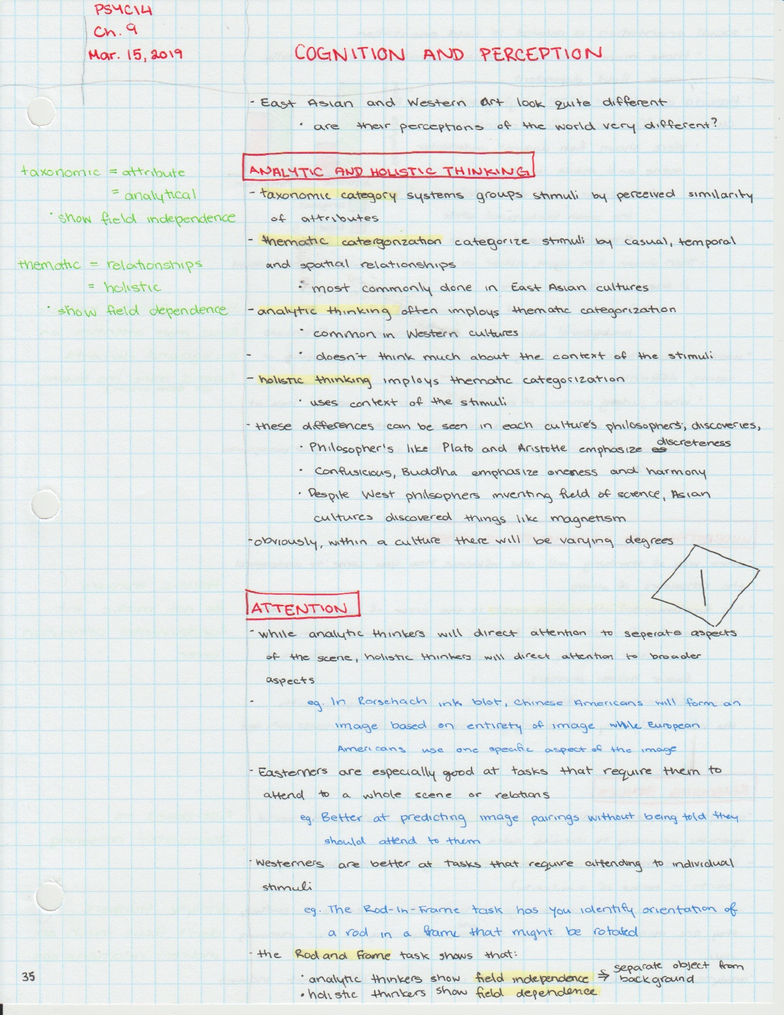 PSYC14
Ch. 9
Mar. 15, 2019
COGNITION AND PERCEPTION
- East Asian and Western Art look quite different
• are their perceptions of the world very different?
ANALYTIC AND HOLISTIC THINKING
taxonomic = attribute
= analytical
• show field independence
thematic = relationships
= holistic
• show field dependence
- taxonomic category systems groups stimuli by perceived similarity
of attributes
- thematic catergorization categorize stimuli by casual, temporal
and spatial relationships
• most commonly done in East Asian cultures
- analytic thinking often imploys thematic categorization
• common in Western cultures
- • doesn't think much about the context of the stimuli
- holistic thinking imploys thematic categorization
• uses context of the stimuli
- these differences can be seen in each culture's philosophers, discoveries,
• Philosopher's like Plato and Aristotle emphasize discreteness
• Confusicious, Buddha emphasize oneness and harmony
• Despite West philsophers inventing field of science, Asian
cultures discovered things like magnetism
- obviously, within a culture there will be varying degrees
ATTENTION
- while analytic thinkers will direct attention to seperate aspects
of the scene, holistic thinkers will direct attention to broader
aspects
- eg. In Rorschach ink blot, Chinese Americans will form an
image based on entirety of image while European
Americans use one specific aspect of the image
- Easterners are especially good at tasks that require them to
attend to a whole scene or relations
eg. Better at predicting image pairings without being told they
should attend to them
- Westerners are better at tasks that require attending to individual
stimuli
eg. The Rod-In-Frame task has you identify orientation of
a rod in a frame that might be rotated
- the Rod and Frame task shows that:
• analytic thinkers show field independence → separate object from
background
• holistic thinkers show field dependence
35